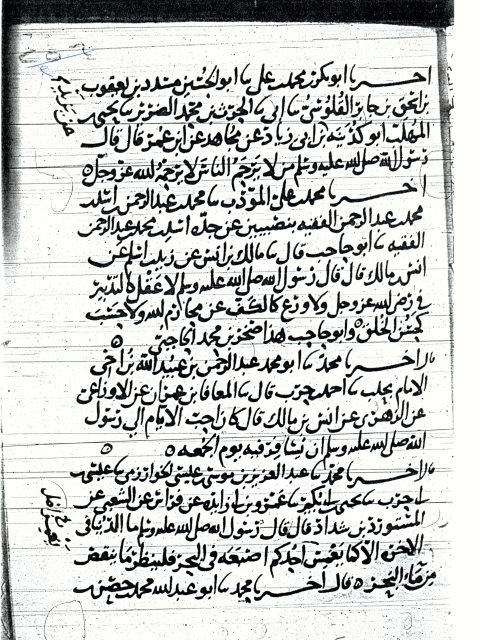 اخبرنا ابو بكر محمد بن علي نا ابو الحسين مسدد بن يعقوب
بن اسحق بن حاتم الفلوسي نا ابي نا الحرث بن محمد الضرير نا يحيى بن
المهلب ابو كدينه عن ابي زياد عن مجاهد عن ابن عمر قال قال
رسول الله صلى الله عليه وسلم من لا يرحم الناس لا يرحمه الله عز وجل ٥
اخبرنا محمد بن علي المؤدب نا محمد بن عبد الرحمن
محمد بن عبد الرحمن الفقيه بنصيبين عن جده محمد بن عبد الرحمن
الفقيه نا ابو حاجب قال نا مالك بن انس عن زيد بن اسلم عن
انس بن مالك قال قال رسول الله صلى الله عليه وسلم لا عقل كالتدبير
في رضى الله عز وجل ولا ورع كالكف عن محارم الله ولا حسب
كحسن الخلق ٥ وابو حاجب هذا صخر بن محمد الحاجبي ٥
اخبرنا محمد نا ابو محمد عبد الرحمن بن عبيد الله بن اخي
الامام بحلب نا احمد بن حرب قال نا المعافا بن عمران عن الاوزاعي
عن الزهري عن انس بن مالك قال كان احب الايام الى رسول
الله صلى الله عليه وسلم ان يسافر فيه يوم الجمعه ٥ ٥
اخبرنا محمد نا عبد العزيز بن موسى بن عيسى الخوارزمي نا عيسى بن
احمد بن نا يحيى عمرو بن ابي زايده عن فراس عن الشعبي عن
المستورد بن شداد قال قال رسول الله صلى الله عليه وسلم ما الدنيا في
الاخرة الا كما يغمس احدكم اصبعه في البحر فلينظر ما ينقص
من ماء البحر ٥ قال اخبرنا محمد نا ابو عبد الله محمد بن حصن بن